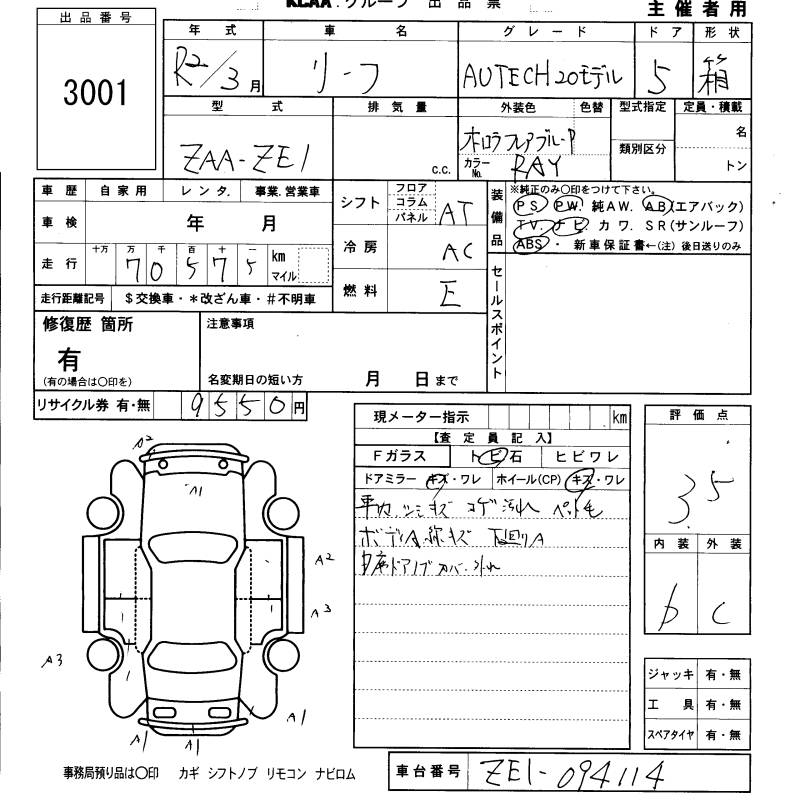 KCAA.グループ 出品票
主催者用
出品番号
3001
年式 車名 グレード ドア 形状
R2/3月 リーフ AUTECH20モデル 5 箱
型式 排気量 外装色 色替 型式指定 定員・積載
ZAA-ZE1 c.c. オーロラフレアブルーP 類別区分 名
カラーNo. RAY トン
車歴 自家用 レンタ. 事業.営業車
車検 年 月
走行 十万 万 千 百 十 一 km マイル
70575
走行距離記号 $交換車・*改ざん車・#不明車
シフト フロア コラム パネル AT
冷房 AC
燃料 E
装備品 ※純正のみ〇印をつけて下さい。
PS PW. 純AW. AB(エアバック)
TV. ナビ. カワ. SR(サンルーフ)
ABS・ 新車保証書←(注) 後日送りのみ
セールスポイント
修復歴 箇所
有
(有の場合は〇印を)
注意事項
名変期日の短い方 月 日まで
リサイクル券 有・無 9550円
現メーター指示 km
【査定員記入】
Fガラス トビ石 ヒビワレ
ドアミラー キズ・ワレ ホイール(CP) キズ・ワレ
車内 シミ キズ コゲ 汚れ ペット毛
ボディA 線キズ 下回りA
ドアノブカバー外れ
評価点
3.5
内装 外装
b C
ジャッキ 有・無
工具 有・無
スペアタイヤ 有・無
A2
A1
A2
A3
A3
A1
A1
A1
事務局預り品は〇印 カギ シフトノブ リモコン ナビロム
車台番号 ZE1-094114